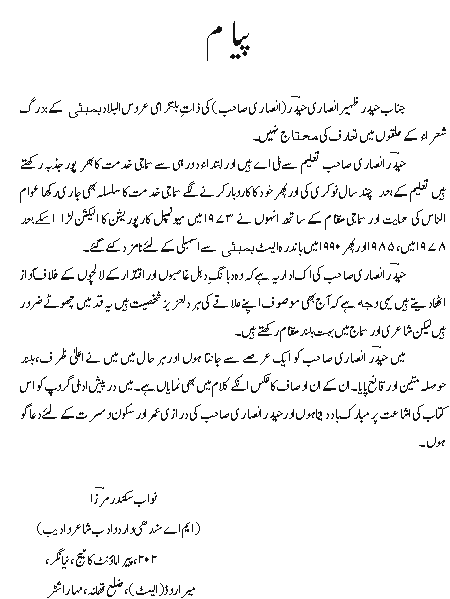 پیام
جناب حیدر ظہیر انصاری حیدر (انصاری صاحب) کی ذاتِ بلنگرامی عروس البلاد بمبئی کے بزرگ
شعراء کے حلقوں میں تعارف کی محتاج نہیں۔
حیدر انصاری صاحب تعلیم سے بی اے ہیں اور ابتداء دور ہی سے سماجی خدمت کا بھرپور جذبہ رکھتے
ہیں تعلیم کے بعد چند سال نوکری کی اور پھر خود کا کاروبار کرنے لگے سماجی خدمت کا سلسلہ بھی جاری رکھا عوام
الناس کی حمایت اور سماجی مقام کے ساتھ انہوں نے ۱۹۷۳ میں میونسپل کارپوریشن کا الیکشن لڑا اسکے بعد
۱۹۷۸ میں، ۱۹۸۵ اور پھر ۱۹۹۰ میں باندرہ ایسٹ بمبئی سے اسمبلی کے لئے نامزد کئے گئے۔
حیدر انصاری صاحب کی اک ادا یہ ہے کہ وہ دبانگِ دہل غاصبوں اور اقتدار کے لالچوں کے خلاف آواز
اٹھادیتے ہیں یہی وجہ ہے کہ آج بھی موصوف اپنے علاقے کی ہر دلعزیز شخصیت ہیں یہ قد میں چھوٹے ضرور
ہیں لیکن شاعری اور سماج میں بہت بلند مقام رکھتے ہیں۔
میں حیدر انصاری صاحب کو ایک عرصے سے جانتا ہوں اور ہر حال میں میں نے اعلیٰ ظرف، بلند
حوصلہ متین اور قانع پایا۔ ان کے ان اوصاف کا عکس انکے کلام میں بھی نمایاں ہے۔ میں درپیش ادبی گروپ کو اس
کتاب کی اشاعت پر مبارک باد دیتا ہوں اور حیدر انصاری صاحب کی درازی عمر اور سکون و مسرت کے لئے دعا گو
ہوں۔
نواب سکندر مرزا
(ایم اے سندھی و اردو ادب شاعر و ادیب)
۲۰۲، پیراماؤنٹ کاٹیج، نیانگر،
میرا روڈ (ایسٹ)، ضلع تھانہ، مہاراشٹر